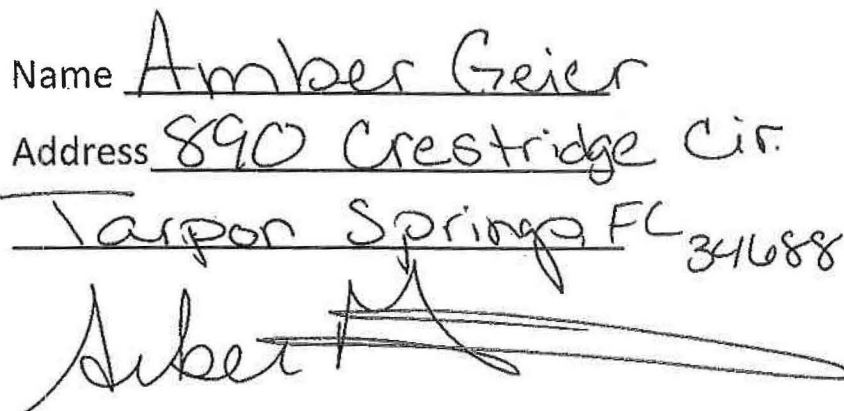 Name Amber Geier
Address 890 Crestridge Cir.
Tarpon Springs, FL 34688
Amber